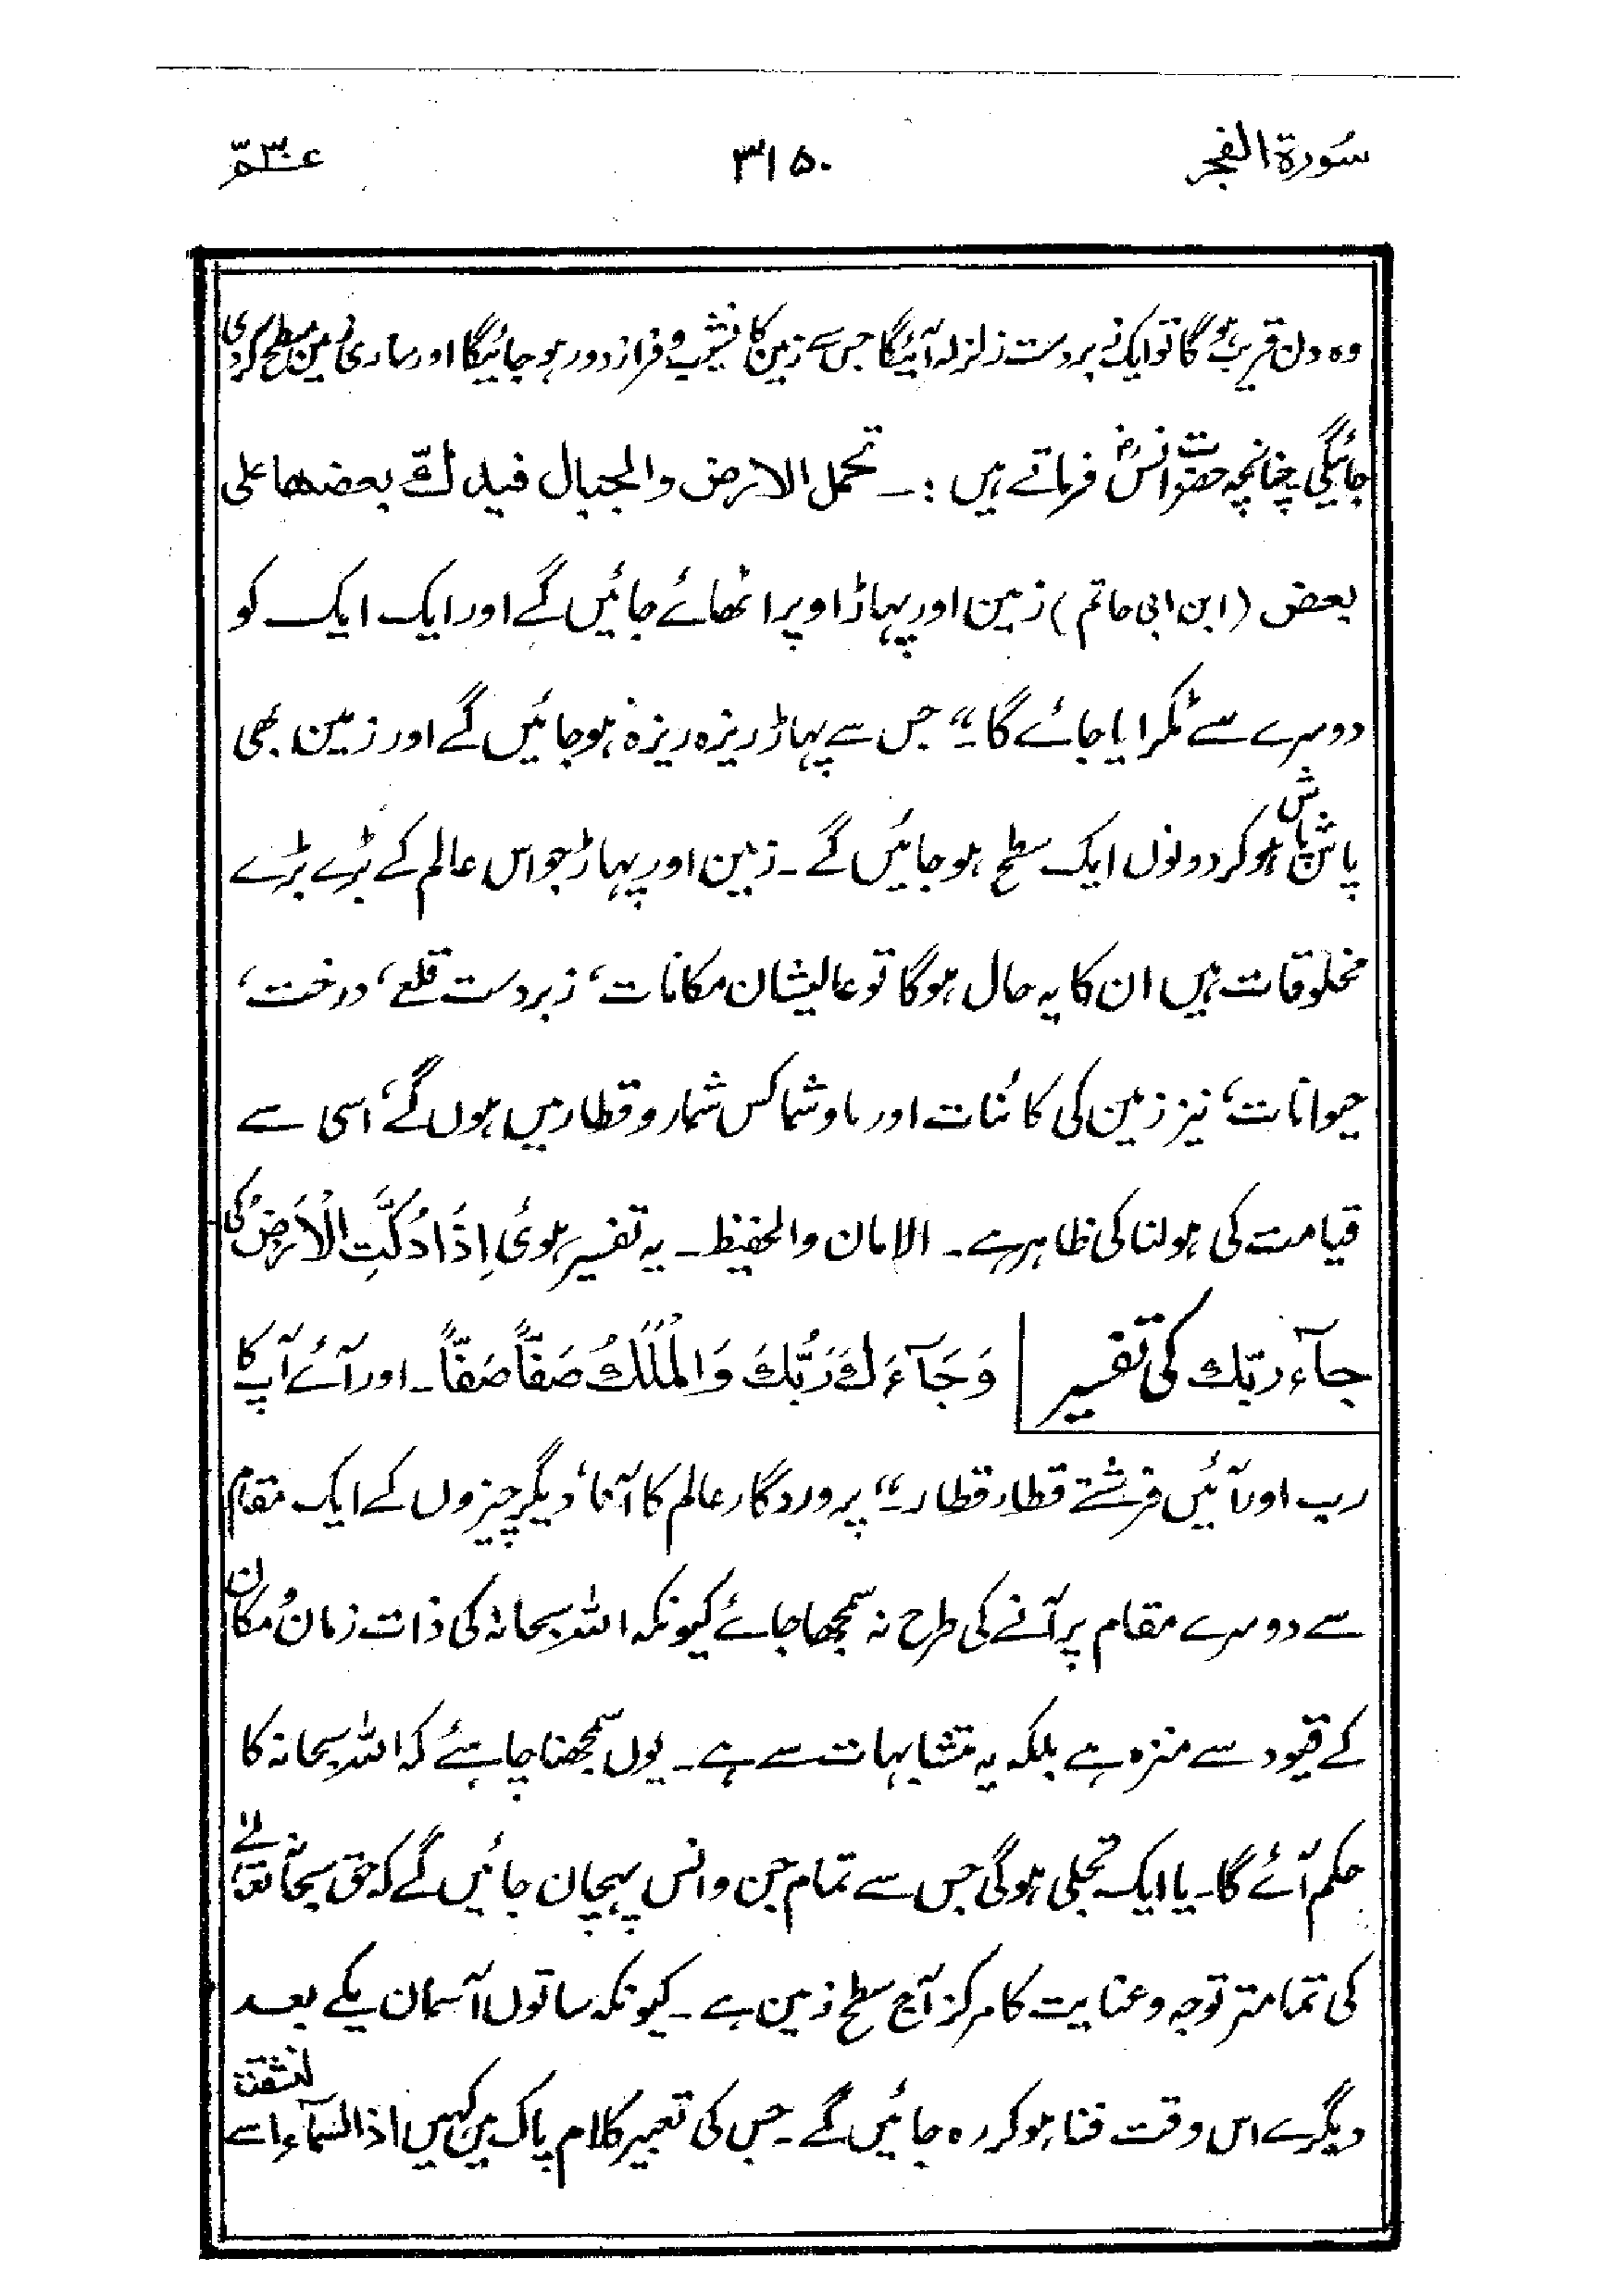 سُورۃ الفجر ۳۱۵۰ عمّ ۳۰
وہ دن قریب ہوگا تو ایک زبردست زلزلہ آئیگا جس سے زمین کا نشیب و فراز دور ہو جائیگا اور ساری زمین مسطح کر دی
جائیگی چنانچہ حضرت انسؓ فرماتے ہیں :۔ تحمل الارض والجبال فیدلک بعضھا علی
بعض (ابن ابی حاتم) زمین اور پہاڑ اوپر اٹھائے جائیں گے اور ایک ایک کو
دوسرے سے ٹکرایا جائے گا۔“ جس سے پہاڑ ریزہ ریزہ ہو جائیں گے اور زمین بھی
پاش پاش ہو کر دونوں ایک سطح ہو جائیں گے۔ زمین اور پہاڑ جو اس عالم کے بڑے بڑے
مخلوقات ہیں ان کا یہ حال ہوگا تو عالیشان مکانات، زبردست قلعے، درخت،
حیوانات، نیز زمین کی کائنات اور ماوشما کس شمار و قطار میں ہوں گے، اسی سے
قیامت کی ہولناکی ظاہر ہے۔ الامان والحفیظ۔ یہ تفسیر ہوئی اِذَا دُکَّتِ الْاَرْضُ کی
جآء ربّک کی تفسیر وَجَآءَ رَبُّکَ وَالْمَلَکُ صَفًّا صَفًّا۔ اور آئے آپ کا
رب اور آئیں فرشتے قطار قطار۔“ پروردگار عالم کا آنا، دیگر چیزوں کے ایک مقام
سے دوسرے مقام پر آنے کی طرح نہ سمجھا جائے کیونکہ اللہ سبحانہ کی ذات زمان و مکان
کے قیود سے منزہ ہے بلکہ یہ متشابہات سے ہے۔ یوں سمجھنا چاہئے کہ اللہ سبحانہ کا
حکم آئے گا۔ یا ایک تجلی ہوگی جس سے تمام جن و انس پہچان جائیں گے کہ حق سبحانہ تعالے
کی تمامتر توجہ و عنایت کا مرکز آج سطح زمین ہے۔ کیونکہ ساتوں آسمان یکے بعد
دیگرے اس وقت فنا ہو کر رہ جائیں گے۔ جس کی تعبیر کلام پاک میں کہیں اذا السّمآء انشقت سے